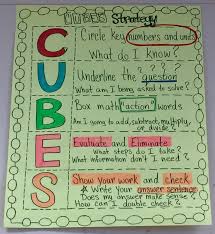 CUBES Strategy
C
Circle Key numbers and units
What do I know?
U
Underline the question
What am I being asked to solve?
B
Box math "action" words
Am I going to add, subtract, multiply,
or divide?
E
Evaluate and Eliminate
What steps do I take?
What information don't I need?
S
Show your work and check
Write your answer sentence
Does my answer make sense?
How can I double check?